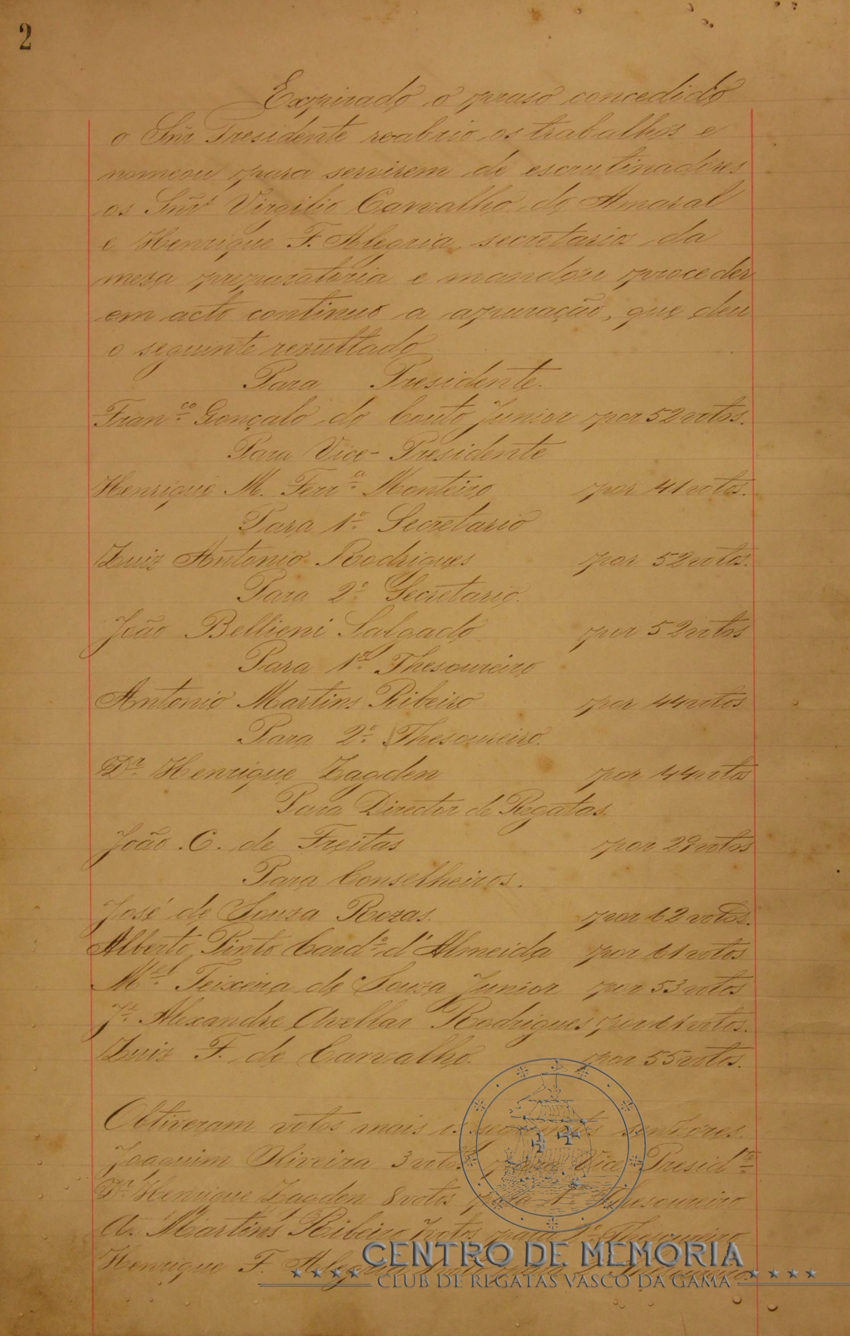 2
Expirado o praso concedido
o Snr Presidente reabrio os trabalhos e
nomeou para servirem de escrutinadores
os Snrs Virgilio Carvalho do Amaral
e Henrique F. Alegria, secretario da
meza preparatoria e mandou proceder
em acto continuo a apuração, que deu
o seguinte resultado
Para Presidente
Franco Gonçalo do Couto Junior por 52 votos.
Para Vice-Presidente
Henrique M. Ferra Monteiro por 41 votos.
Para 1º Secretario
Luiz Antonio Rodrigues por 52 votos.
Para 2º Secretario.
João Bellieni Salgado por 52 votos
Para 1º Thesoureiro
Antonio Martins Ribeiro por 44 votos
Para 2º Thesoureiro.
Dr Henrique Lagden por 44 votos
Para Director de Regatas.
João C. de Freitas por 29 votos
Para Conselheiros.
José de Souza Rozas por 62 votos.
Alberto Pinto Cardo d'Almeida por 61 votos
Mel Teixeira de Souza Junior por 53 votos
Je Alexandre Avellar Rodrigues por votos.
Luiz F. de Carvalho. por 55 votos.
Obtiveram votos mais os seguintes senhores.
Joaquim Oliveira 3 votos para Vice Preside
Dr Henrique Lagden 8 votos para Thesoureiro
A. Martins Ribeiro votos para Thesoureiro
Henrique F. Alegria
CENTRO DE MEMORIA
CLUB DE REGATAS VASCO DA GAMA